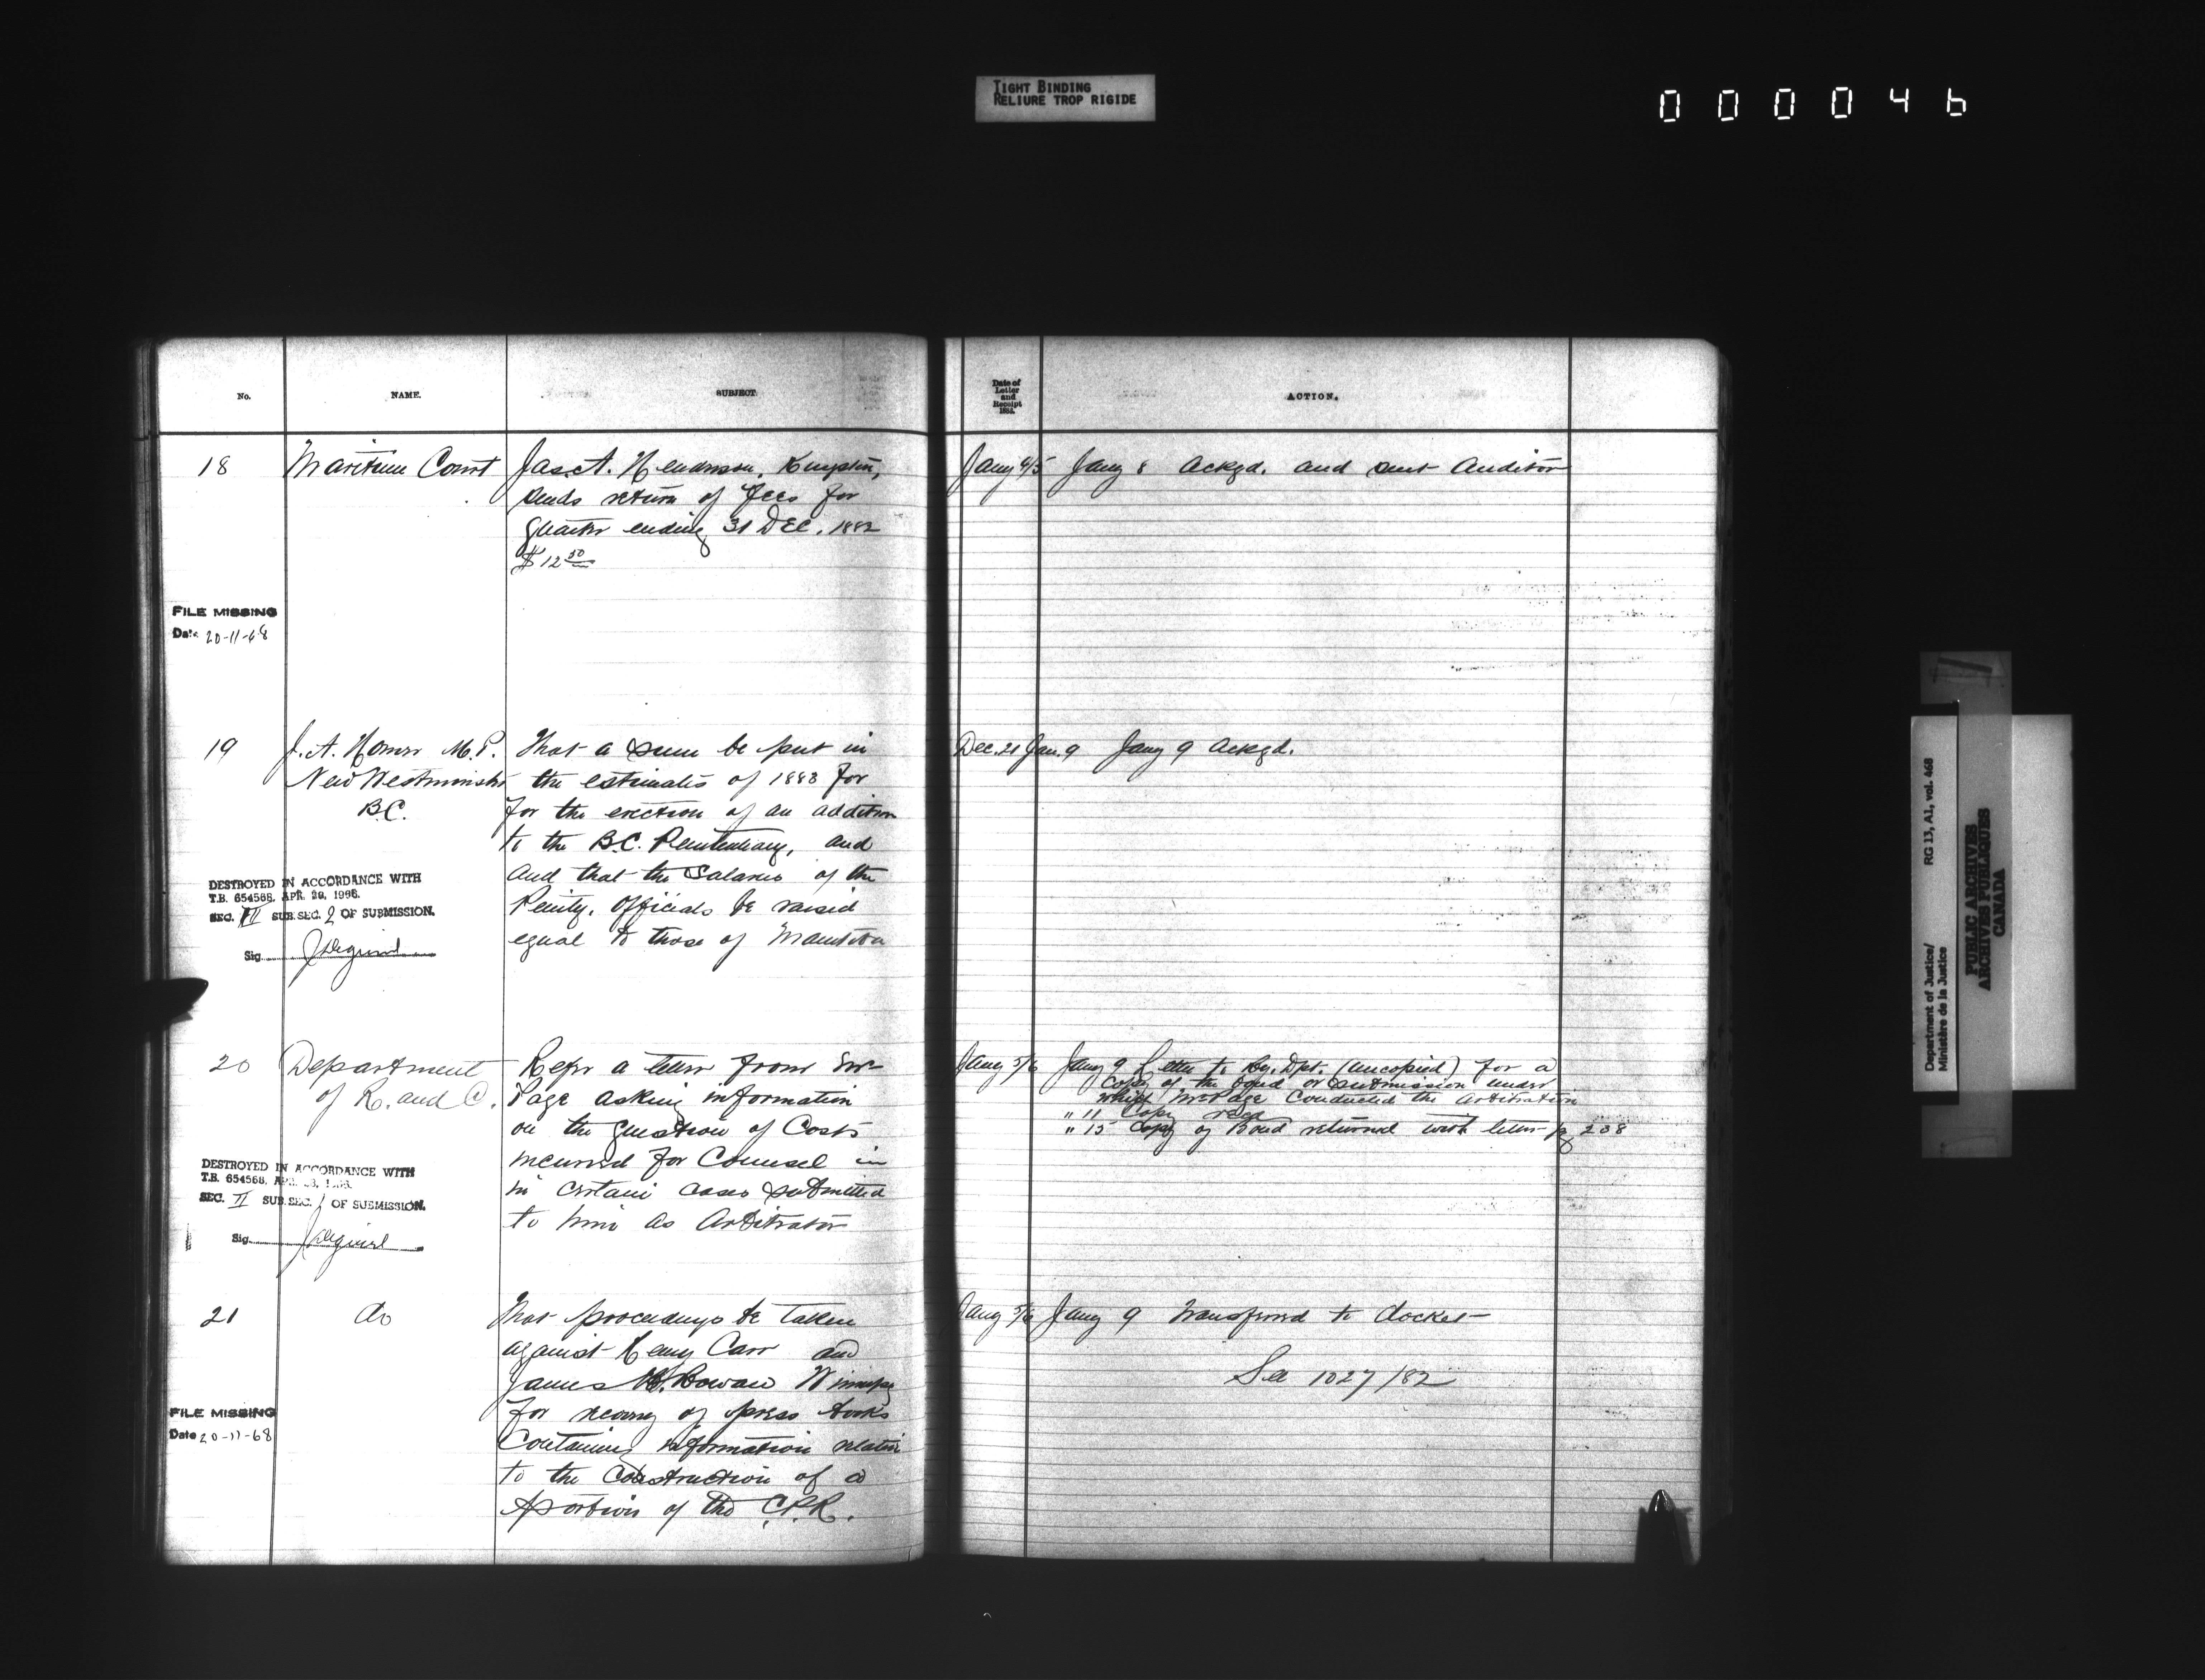 TIGHT BINDING
RELIURE TROP RIGIDE
000046
No. NAME. SUBJECT.
Date of
Letter
and
Receipt
1883.
ACTION.
18 Maritime Court Jas. A. Henderson, Kingston,
sends return of Fees for
quarter ending 31 DEC. 1882
$12 50
Jany 4/5 Jany 8 Ackgd. and sent Auditor
FILE MISSING
Date 20-11-68
19 J. A. Homer M.P.
New Westminster
B.C.
That a sum be put in
the estimates of 1883 for
for the erection of an addition
to the B.C. Penitentiary, and
and that the Salaries of the
Penity. Officials be raised
equal to those of Manitoba
Dec. 21 Jan. 9 Jany 9 Ackgd.
DESTROYED IN ACCORDANCE WITH
T.B. 654568, APR. 29, 1966.
SEC. II SUB.SEC. 2 OF SUBMISSION.
Sig.
20 Department
of R. and C.
Refer a letter from
Page asking information
on the question of Costs
incurred for Counsel in
in certain cases submitted
to him as Arbitrator
Jany 5/6 Jany 9 Letter to Ry. Dpt. (uncopied) for a
Copy of the bond or submission under
which Mr Page Conducted the arbitration
" 11 Copy recd
" 15 Copy of Bond returned with letter pg 208
DESTROYED IN ACCORDANCE WITH
T.B. 654568,
SEC. II SUB.SEC. 1 OF SUBMISSION.
Sig.
21 do
That proceedings be taken
against Henry Carr and
James H. Rowan Winnipeg
for recovery of press books
Containing information relative
to the Construction of a
portion of the C.P.R.
Jany 5/6 Jany 9 Transferred to docket
See 1027/82
FILE MISSING
Date 20-11-68
Department of Justice/
Ministère de la Justice
RG 13, A1, vol. 468
PUBLIC ARCHIVES
ARCHIVES PUBLIQUES
CANADA